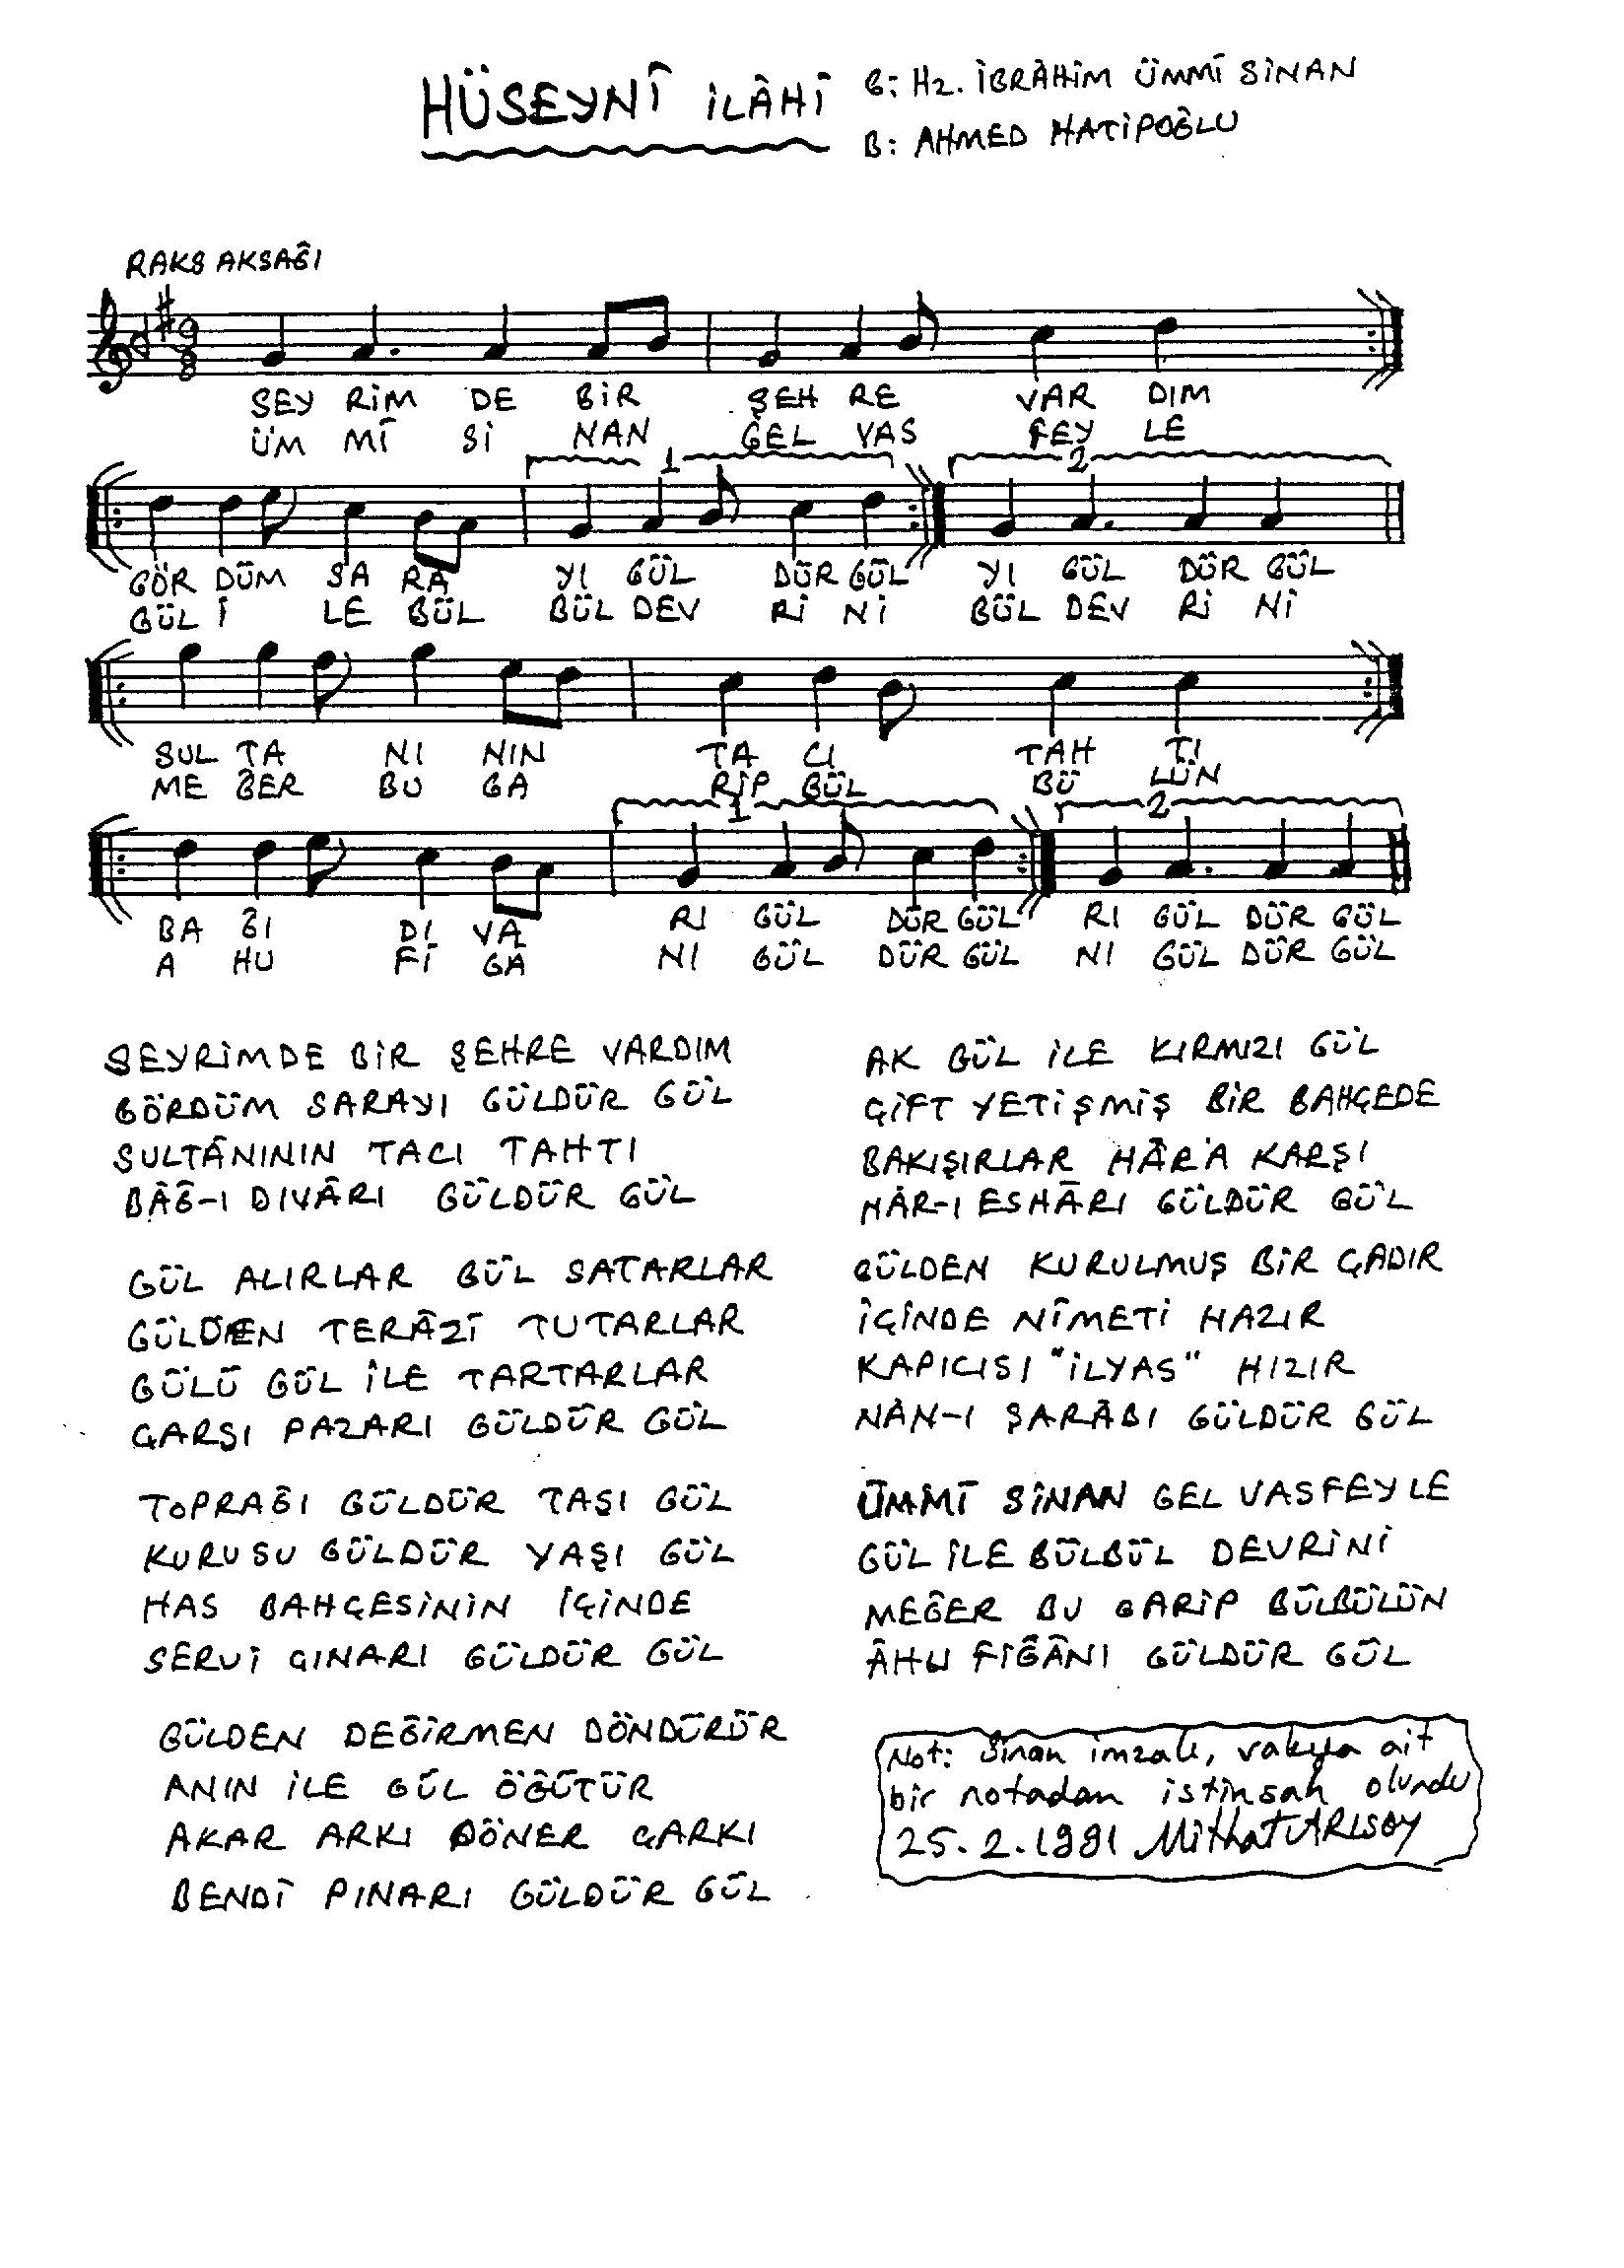 HÜSEYNÎ İLÂHÎ
G: Hz. İBRÂHİM ÜMMÎ SİNAN
B: AHMED HATİPOĞLU
RAKS AKSAĞI
9
8
SEY RİM DE BİR ŞEH RE VAR DIM
ÜM MÎ Sİ NAN GEL VAS FEY LE
1 2
GÖR DÜM SA RA YI GÜL DÜR GÜL YI GÜL DÜR GÜL
GÜL İ LE BÜL BÜL DEV Rİ Nİ BÜL DEV Rİ Nİ
SUL TA NI NIN TA CI TAH TI
ME ĞER BU GA RİP BÜL BÜ LÜN
1 2
BA ĞI DI VA RI GÜL DÜR GÜL RI GÜL DÜR GÜL
A HU Fİ GA NI GÜL DÜR GÜL NI GÜL DÜR GÜL
SEYRİMDE BİR ŞEHRE VARDIM
GÖRDÜM SARAYI GÜLDÜR GÜL
SULTÂNININ TACI TAHTI
BÂĞ-I DIVÂRI GÜLDÜR GÜL
GÜL ALIRLAR GÜL SATARLAR
GÜLDEN TERÂZÎ TUTARLAR
GÜLÜ GÜL İLE TARTARLAR
ÇARŞI PAZARI GÜLDÜR GÜL
TOPRAĞI GÜLDÜR TAŞI GÜL
KURUSU GÜLDÜR YAŞI GÜL
HAS BAHÇESİNİN İÇİNDE
SERVİ ÇINARI GÜLDÜR GÜL
GÜLDEN DEĞİRMEN DÖNDÜRÜR
ANIN İLE GÜL ÖĞÜTÜR
AKAR ARKI DÖNER ÇARKI
BENDİ PINARI GÜLDÜR GÜL
AK GÜL İLE KIRMIZI GÜL
ÇİFT YETİŞMİŞ BİR BAHÇEDE
BAKIŞIRLAR HÂR'A KARŞI
HÂR-I ESHÂRI GÜLDÜR GÜL
GÜLDEN KURULMUŞ BİR ÇADIR
İÇİNDE NÎMETİ HAZIR
KAPICISI "İLYAS" HIZIR
NÂN-I ŞARÂBI GÜLDÜR GÜL
ÜMMÎ SİNAN GEL VASFEYLE
GÜL İLE BÜLBÜL DEVRİNİ
MEĞER BU GARİP BÜLBÜLÜN
ÂHU FİĞÂNI GÜLDÜR GÜL
Not: Sinan imzalı, vakıya ait
bir notadan istinsah olundu
25.2.1991 Mithat ARISOY